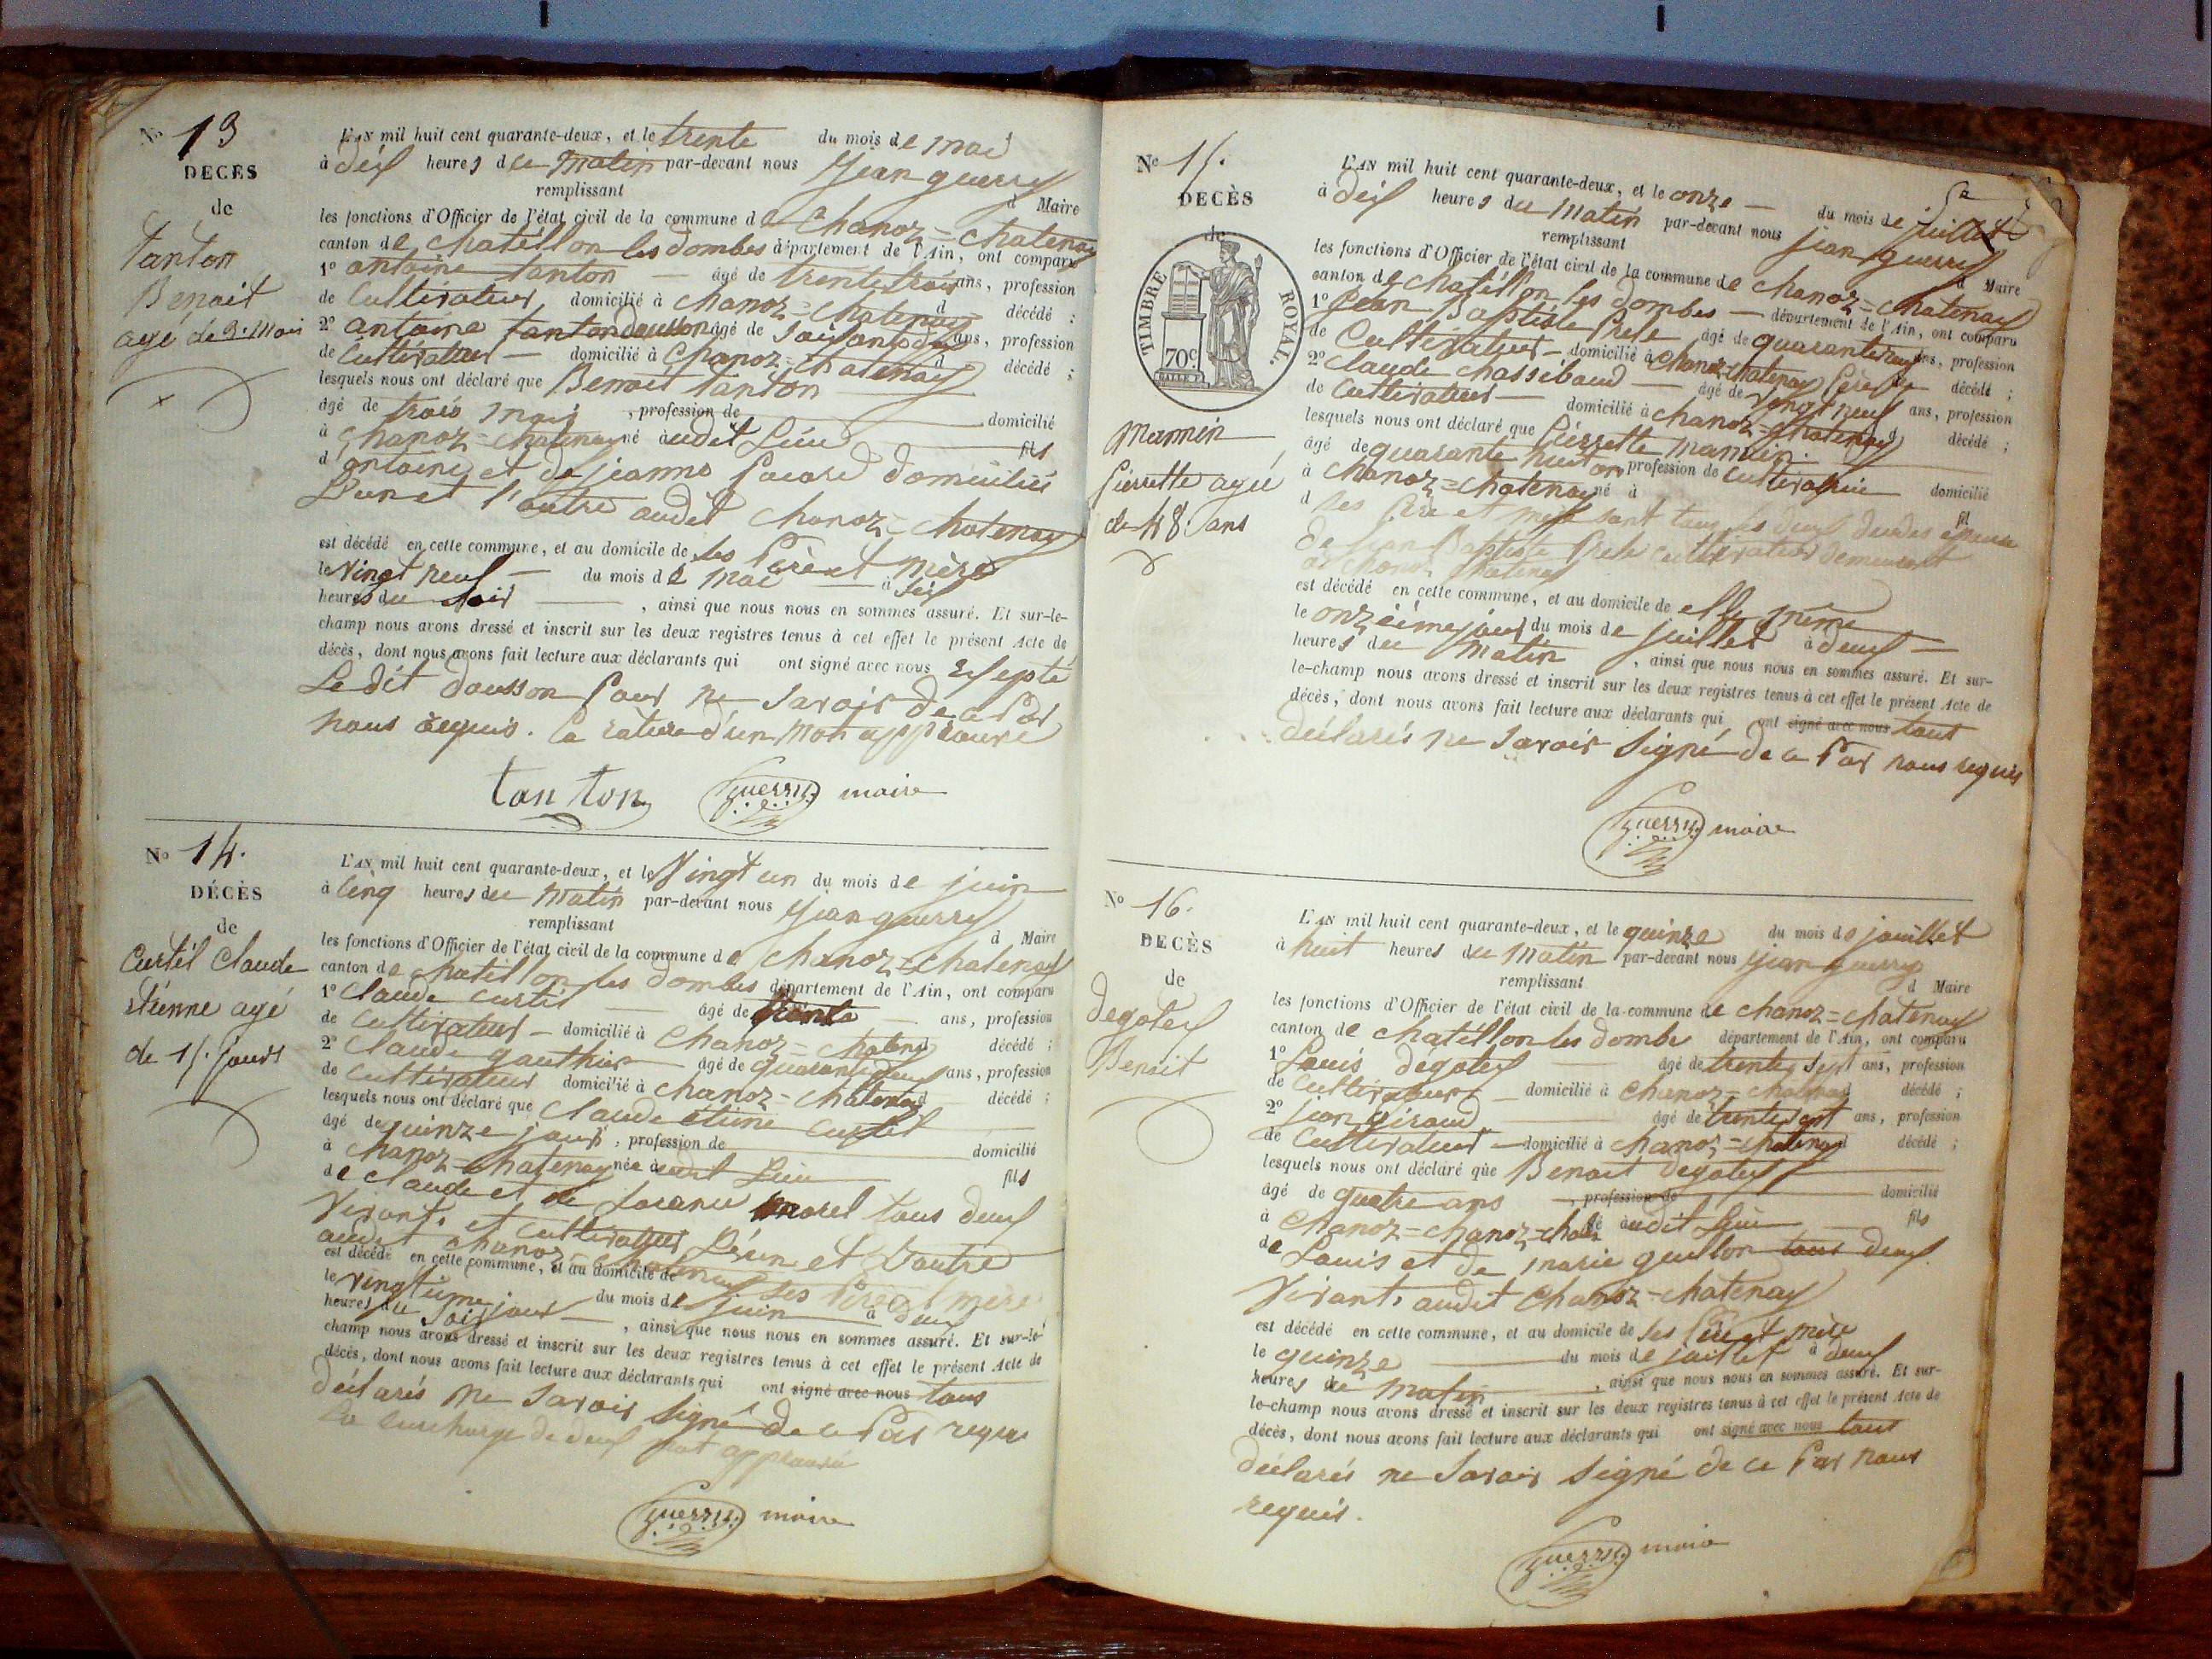 No 13
DECÈS
de
Tanton
Benoit
agé de 3. Mois
L'AN mil huit cent quarante-deux, et le trente du mois de mai
à dix heures du matin par-devant nous jean guerry
remplissant d Maire
les fonctions d'Officier de l'état civil de la commune de Chanoz=Chatenay
canton de chatillon les dombes département de l'Ain, ont comparu
1o antoine tanton âgé de trente trois ans, profession
de Cultivateur domicilié à Chanoz=Chatenay d décédé ;
2o antoine tanton dousson âgé de soixante ans, profession
de Cultivateur domicilié à Chanoz=Chatenay d décédé ;
lesquels nous ont déclaré que Benoit tanton
âgé de trois mois , profession de domicilié
à Chanoz=Chatenay né à audit lieu fils
d'antoine et de jeanne domiciliés
l'un et l'autre audit Chanoz=Chatenay
est décédé en cette commune, et au domicile de ses Père et mère
le vingt neuf du mois de mai à six
heures du soir , ainsi que nous nous en sommes assuré. Et sur-le-
champ nous avons dressé et inscrit sur les deux registres tenus à cet effet le présent Acte de
décès, dont nous avons fait lecture aux déclarants qui ont signé avec nous excepté
Le dit dousson pour ne savoir de ce par
nous requis. la rature d'un mot approuvé
tanton guerry maire
No 14.
DÉCÈS
de
Curtil Claude
etienne agé
de 15. jours
L'AN mil huit cent quarante-deux, et le vingt un du mois de juin
à cinq heures du matin par-devant nous jean guerry
remplissant d Maire
les fonctions d'Officier de l'état civil de la commune de Chanoz=Chatenay
canton de chatillon les dombes département de l'Ain, ont comparu
1o Claude curtil âgé de trente ans, profession
de Cultivateur domicilié à Chanoz=Chatenay décédé ;
2o Claude gauthier âgé de ans, profession
de Cultivateur domicilié à Chanoz=Chatenay d décédé ;
lesquels nous ont déclaré que Claude etiene curtil
âgé de quinze jours , profession de domicilié
à Chanoz=Chatenay née à audit lieu fils
de Claude et de morel tous deux
vivant. et cultivateur l'un et l'autre
audit Chanoz=Chatenay
est décédé en cette commune, et au domicile de ses Père et mère
le vingtième jour du mois de juin à deux
heures du soir , ainsi que nous nous en sommes assuré. Et sur-le-
champ nous avons dressé et inscrit sur les deux registres tenus à cet effet le présent Acte de
décès, dont nous avons fait lecture aux déclarants qui ont signé avec nous tous
déclarés ne savoir signé de ce par requis
la surcharge de deux mot approuvé
guerry maire
No 15.
DÉCÈS
de
TIMBRE ROYAL.
70c.
Mannin
Pierrette agée
de 48. ans
L'AN mil huit cent quarante-deux, et le onze du mois de juillet
à dix heures du matin par-devant nous jean guerry
remplissant d Maire
les fonctions d'Officier de l'état civil de la commune de Chanoz=Chatenay
canton de chatillon les dombes département de l'Ain, ont comparu
1o jean Baptiste Prele âgé de ans, profession
de Cultivateur domicilié à Chanoz=Chatenay décédé ;
2o Claude chassibaud âgé de vingt neuf ans, profession
de Cultivateur domicilié à Chanoz=Chatenay d décédé ;
lesquels nous ont déclaré que Pierrette mannin
âgé de quarante huit ans profession de cultivatrice domicilié
à Chanoz=Chatenay né à fil
d ses Père et mère sont tous les deux épouse
de jean Baptiste Prele cultivateur demeurant
à Chanoz Chatenay
est décédé en cette commune, et au domicile de elle même
le onzième jour du mois de juillet à deux
heures du matin , ainsi que nous nous en sommes assuré. Et sur-
le-champ nous avons dressé et inscrit sur les deux registres tenus à cet effet le présent Acte de
décès, dont nous avons fait lecture aux déclarants qui ont signé avec nous tout
déclarés ne savoir signé de ce par nous requis
guerry maire
No 16.
DECÈS
de
degotex
Benoit
L'AN mil huit cent quarante-deux, et le quinze du mois de jouillet
à huit heures du matin par-devant nous jean guerry
remplissant d Maire
les fonctions d'Officier de l'état civil de la commune de Chanoz=Chatenay
canton de chatillon les dombe département de l'Ain, ont comparu
1o Louis dégotex âgé de trente sept ans, profession
de Cultivateur domicilié à Chanoz=Chatenay décédé ;
2o jean giraud âgé de trente sept ans, profession
de Cultivateur domicilié à Chanoz=Chatenay décédé ;
lesquels nous ont déclaré que Benoit degotex
âgé de quatre ans , profession de domicilié
à Chanoz=Chanoz=chate né à audit lieu fils
de Louis et de marie guillon tous deux
vivant. audit Chanoz=Chatenay
est décédé en cette commune, et au domicile de ses Père et mère
le quinze du mois de juillet à deux
heures du matin , ainsi que nous nous en sommes assuré. Et sur-
le-champ nous avons dressé et inscrit sur les deux registres tenus à cet effet le présent Acte de
décès, dont nous avons fait lecture aux déclarants qui ont signé avec nous tout
déclarés ne savoir signé de ce par nous
requis.
guerry maire